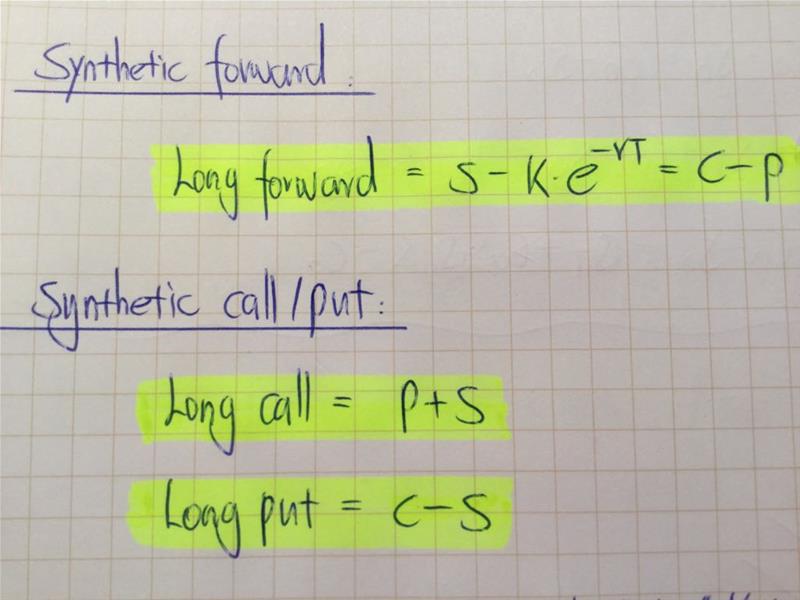 Synthetic forward:
Long forward = S - K·e^-rT = C - P
Synthetic call/put:
Long call = P + S
Long put = C - S